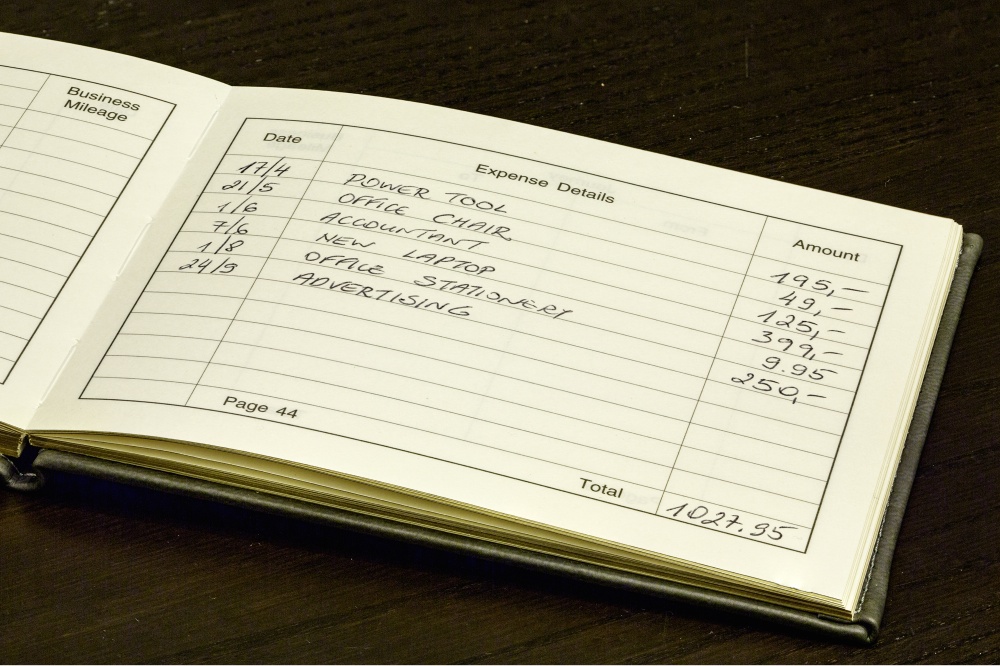 Business
Mileage
Date Expense Details Amount
17/4 POWER TOOL 195,-
21/5 OFFICE CHAIR 49,-
1/6 ACCOUNTANT 125,-
7/6 NEW LAPTOP 399,-
1/8 OFFICE STATIONERY 9.95
24/9 ADVERTISING 250,-
Page 44 Total 1027.95